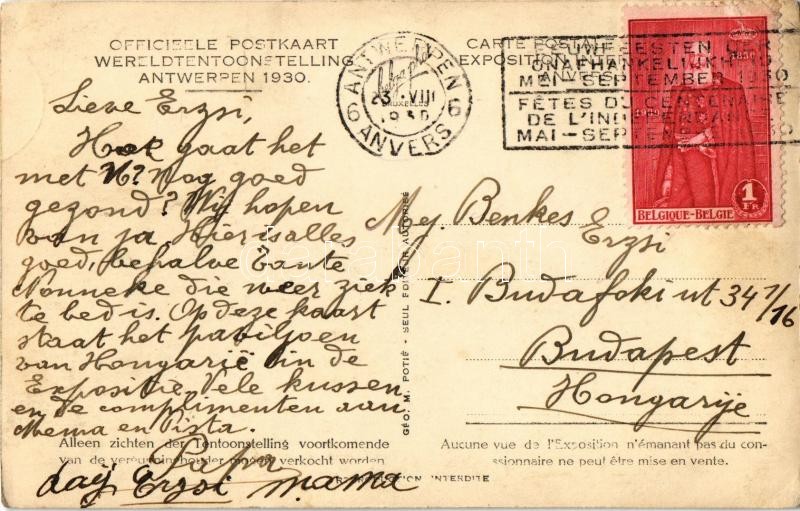 OFFICIEELE POSTKAART
WERELDTENTOONSTELLING
ANTWERPEN 1930.
CARTE POSTALE
EXPOSITION
ANVERS
6 ANTWERPEN 6
23 VIII
ANVERS
ONAFHANKELIJKHEID
MEI-SEPTEMBER 1930
FÊTES DU CENTENAIRE
DE L'INDEPENDANCE
MAI-SEPTEMBRE
1 FR
BELGIQUE-BELGIE
Lieve Erzsi,
Hoe gaat het
met U? Nog goed
gezond? Wij hopen
van ja. Hier is alles
goed, behalve Tante
Nonneke die weer ziek
te bed is. Op deze kaart
staat het paviljoen
van Hongarië in de
Expositie. Vele kussen
en de complimenten aan
Mema en Pista.
dag Erzsi mama
Mej. Benkes
Erzsi
I. Budafoki ut 34 7/16
Budapest
Hongarije
GÉO. M. POTIÉ - SEUL ÉDITEUR AUTORISÉ
Alleen zichten der Tentoonstelling voortkomende
van de vergunninghouder mogen verkocht worden.
Aucune vue de l'Exposition n'émanant pas du con-
cessionnaire ne peut être mise en vente.
REPRODUCTION INTERDITE
darabanth